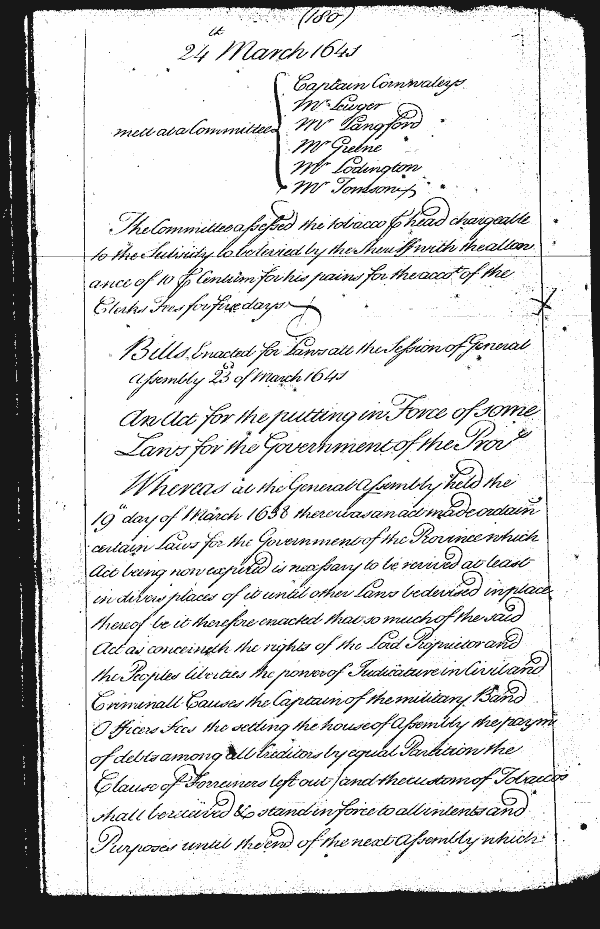 (180)
24th March 1641
mett at a Committee
Captain Cornwaleys
Mr Lewger
Mr Langford
Mr Greene
Mr Lodington
Mr Tomson
The Committee assessed the tobacco ꝑ head chargeable
to the Subsidy to be levied by the Sheriff with the allow
ance of 10 ꝑ Centum for his pains for the accot of the
Clerks Fees for five days
Bills Enacted for Laws att the Session of General
Assembly 23d of March 1641
An Act for the putting in Force of some
Laws for the Government of the Provce
Whereas at the General Assembly held the
19th day of March 1638 there was an act made ordaing
certain Laws for the Government of the Province which
Act being now expired is necessary to be revived at least
in divers places of it until other Laws be devised in place
thereof be it therefore enacted that so much of the said
Act as concerneth the rights of the Lord Proprietor and
the Peoples liberties the power of Judicature in Civil and
Criminall Causes the Captain of the military Band
Officers Fees the setling the house of Assembly the paymt
of debts among all Creditors by equal Partition the
Clause of Forreiners left out) and the custom of Tobaccos
shall be revived & stand in force to all intents and
Purposes until the end of the next Assembly which